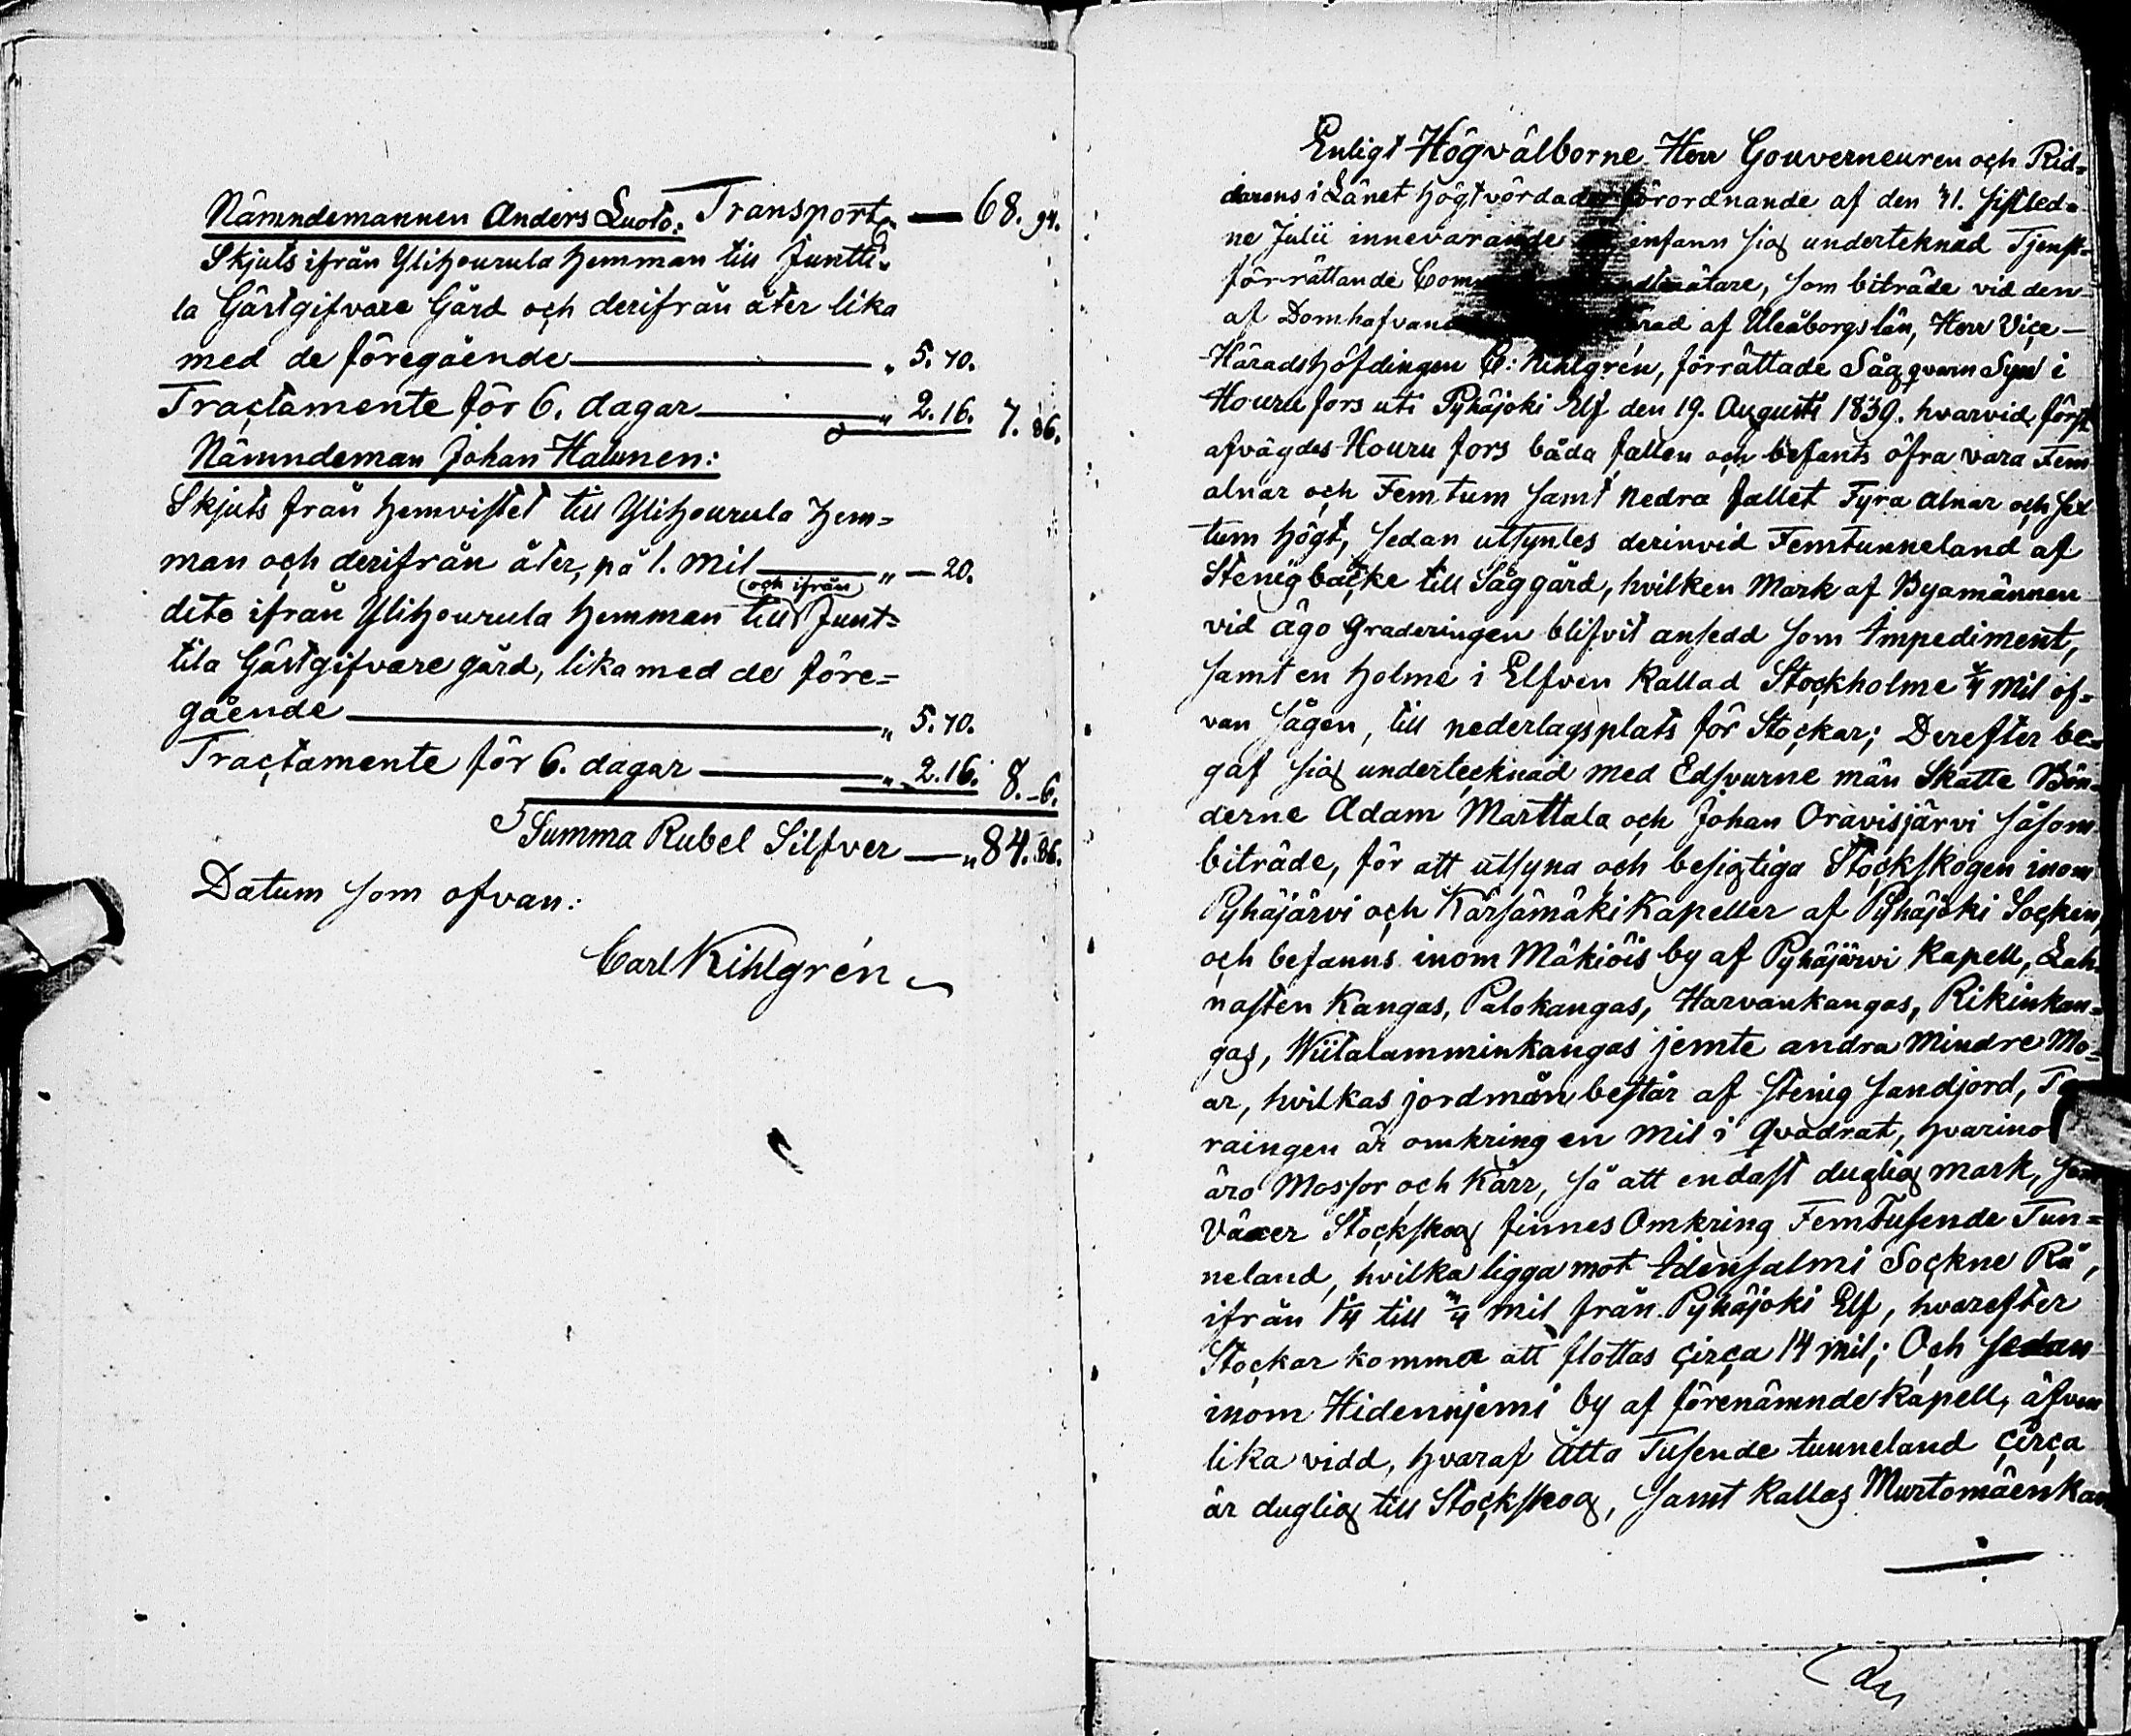 Nämndemannen Anders Luoto: Transport — 68. 94.
Skjuts ifrån Ylihourula hemman till Juntti-
la Gästgifvare Gård och derifrån åter lika
med de föregående — " 5. 70.
Tractamente för 6. dagar — " 2. 16. 7. 86.
Nämndeman Johan Halonen:
Skjuts från hemvistet till Ylihourula hem=
man och derifrån åter, på 1. mil — " — 20.
och ifrån
dito ifrån Ylihourula hemman till Junt=
tila Gästgifvare gård, lika med de före=
gående — " 5. 70.
Tractamente för 6. dagar — " 2. 16. 8. -6.
Summa Rubel Silfver — " 84. 86.
Datum som ofvan:
Carl Kihlgrén
Enligt Högvälborne Herr Gouverneuren och Rid=
darens i Länet högtvördade förordnande af den 31. sistled=
ne Julii innevarande infann sig underteknad Tjenst-
förrättande , som biträde vid den
af af Uleåborgs län, Herr Vice-
Häradshöfdingen C: Kihlgrén, förrättade Sågqvarn Syn i
Houru fors uti Pyhäjoki Elf den 19. Augusti 1839. hvarvid först
afvägdes Houru fors båda fallen och befants öfra vara Fem
alnar och Fem tum samt nedra fallet Fyra alnar och sex
tum högt, sedan utsyntes derinvid Femtunneland af
Stenigbacke till Såggård, hvilken Mark af Byamännen
vid ägo Graderingen blifvit ansedd som Impediment,
samt en holme i Elfven kallad Stockholme 1/4 mil of=
van Sågen, till nederlagsplats för Stockar; Derefter be=
gaf sig underteçknad med Edsvurne män Skatte Bön=
derne Adam Marttala och Johan Oravisjärvi såsom
biträde, för att utsyna och besigtiga Stockskogen inom
Pyhäjärvi och Kärsämäki Kapeller af Pyhäjoki Socken,
och befanns inom Mäkiöis by af Pyhäjärvi Kapell, Lah=
nasten Kangas, Palokangas, Harvankangas, Rikinkan=
gas, Wiitalamminkangas jemte andra Mindre Mo=
ar, hvilkas jordmån består af stenig sandjord, Te
raingen är omkring en mil i Qvadrat, hvarino
äro Mossor och Kärr, så att endast duglig mark, som
växer Stockskog finnes Omkring FemTusende Tun=
neland, hvilka ligga mot Idensalmi Sockne Rå,
ifrån 1/4 till 3/4 mil från Pyhäjoki Elf, hvarefter
Stockar komma att flottas circa 14 mil; Och sedan
inom Hidenniemi by af förenämnde Kapell, äfven
lika vidd, hvaraf åtta Tusende tunneland circa
är duglig till Stockskog, samt kallas Murtomäenkan